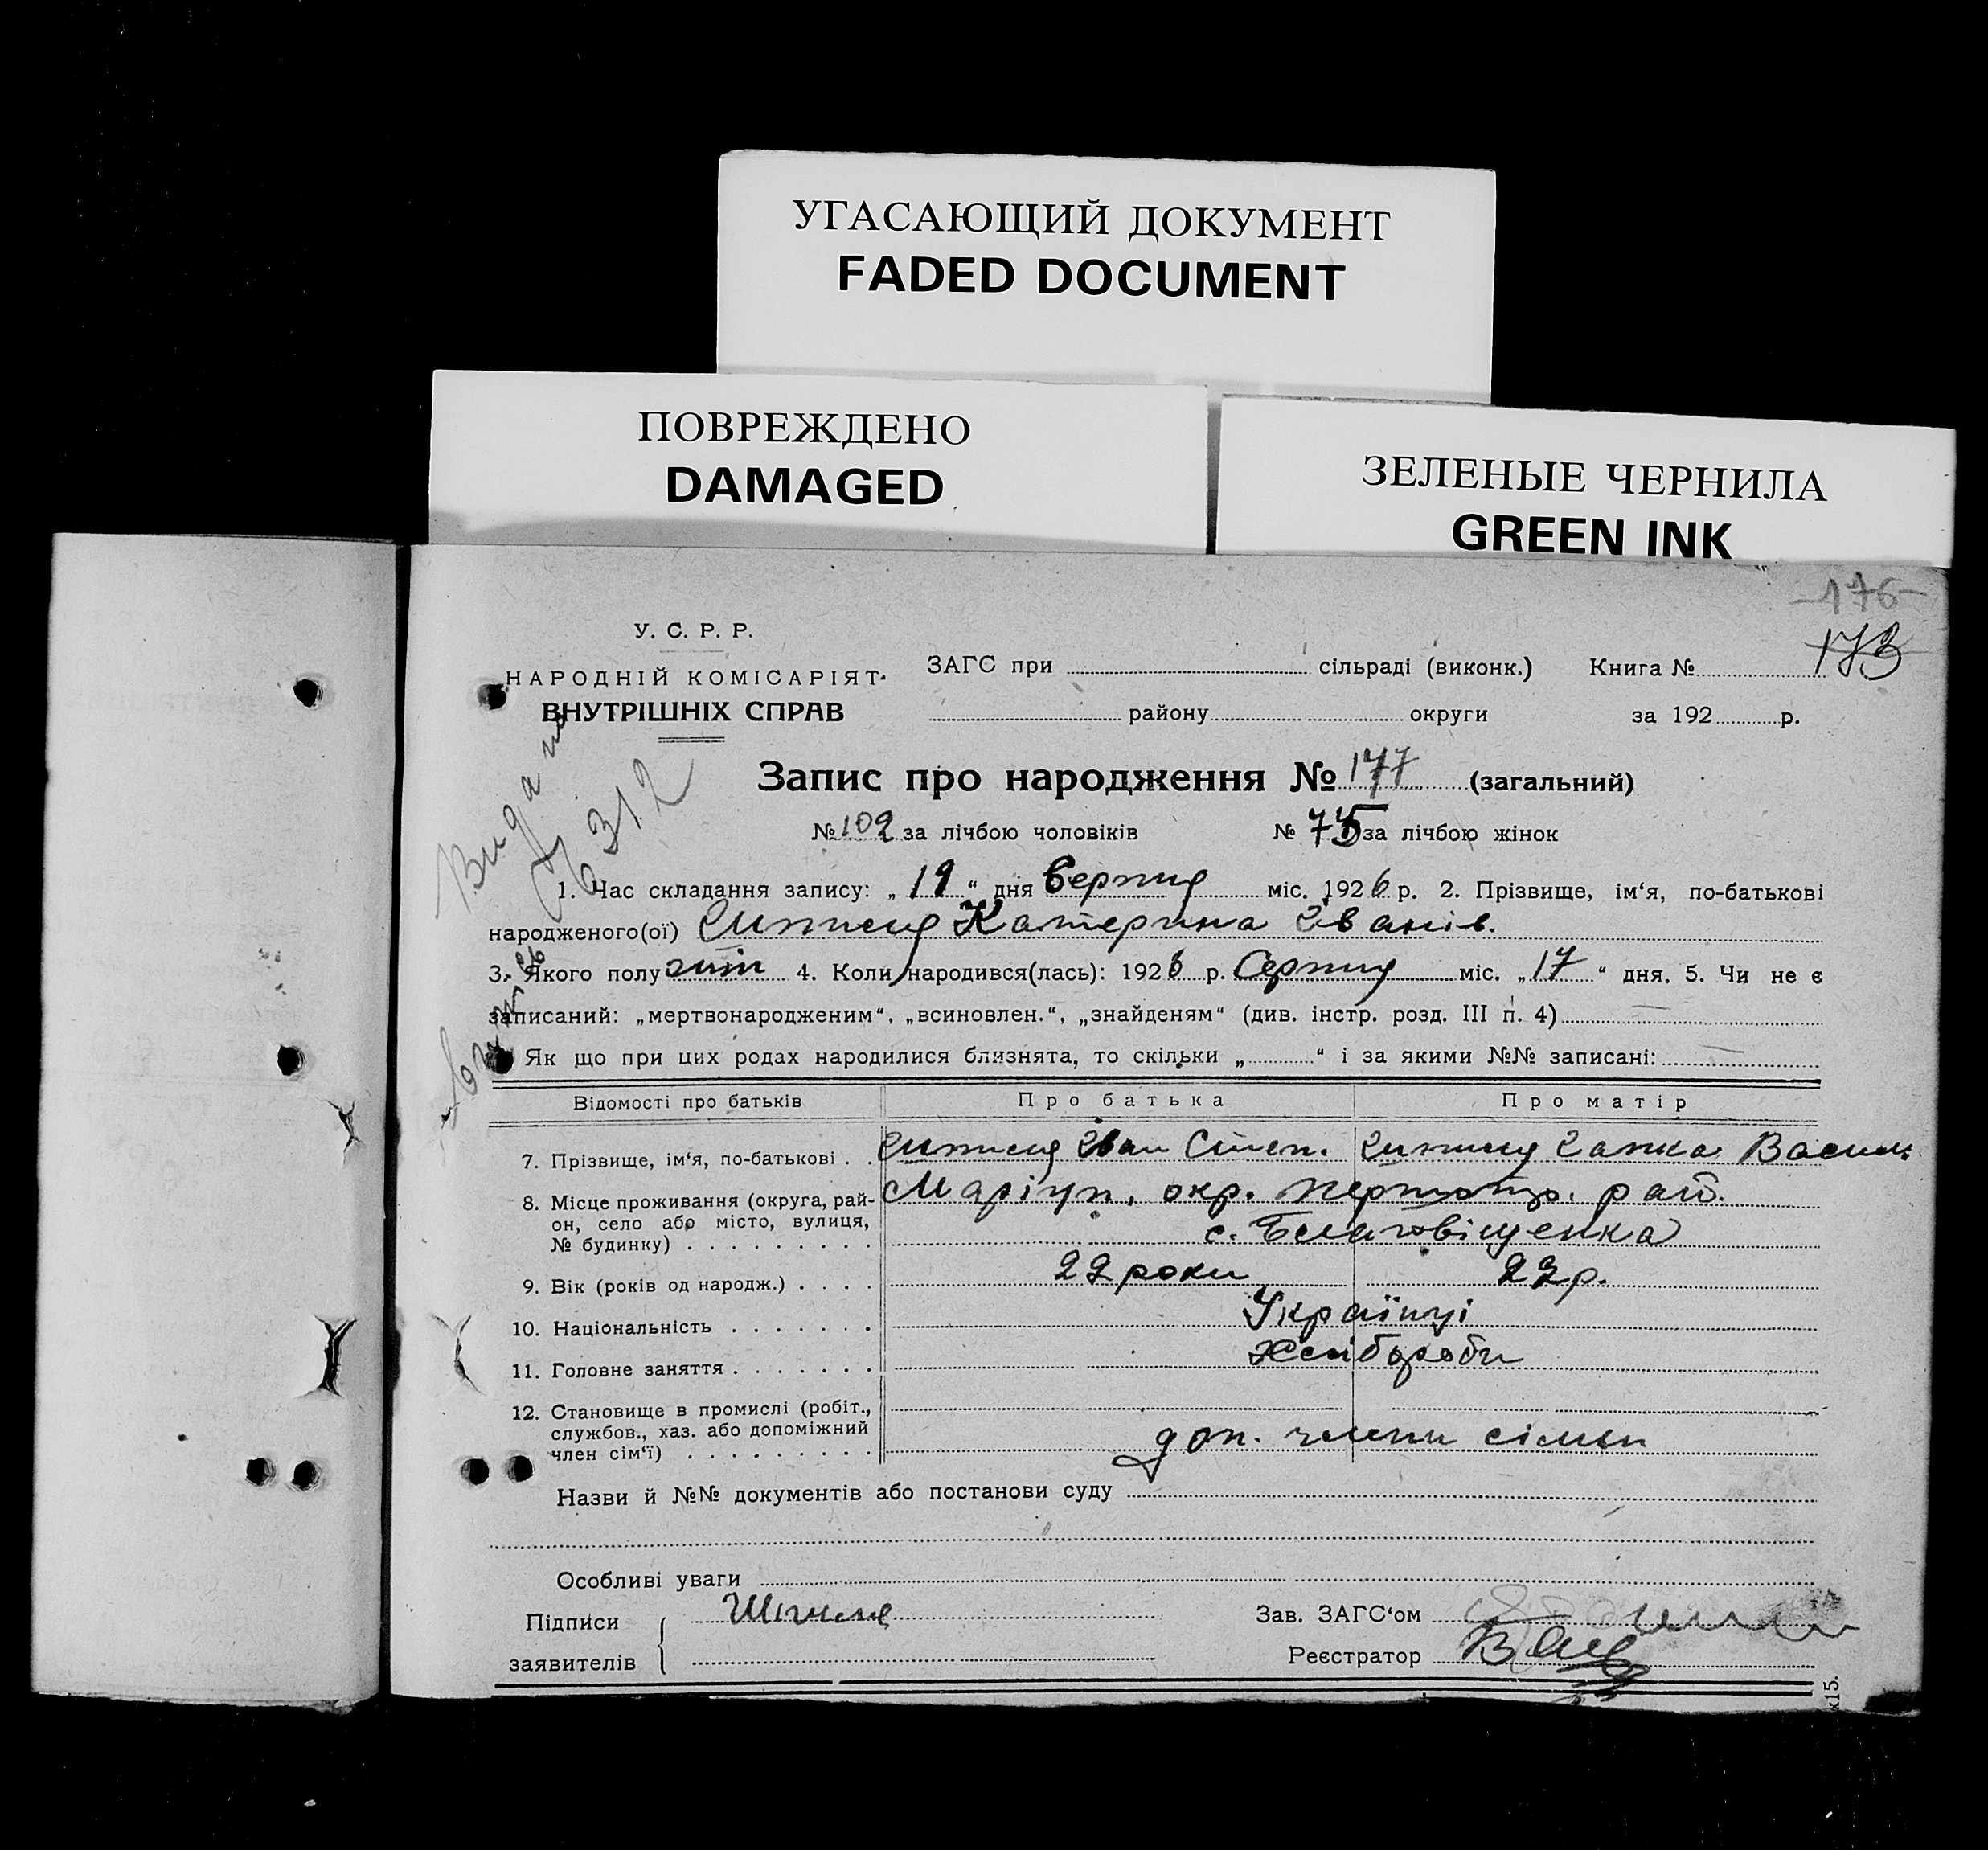 УГАСАЮЩИЙ ДОКУМЕНТ
FADED DOCUMENT
ПОВРЕЖДЕНО
DAMAGED
ЗЕЛЕНЫЕ ЧЕРНИЛА
GREEN INK
176
173
У. С. Р. Р.
НАРОДНІЙ КОМІСАРІЯТ
ВНУТРІШНІХ СПРАВ
ЗАГС при сільраді (виконк.) Книга №
району округи за 192 р.
Запис про народження № 177 (загальний)
№ 102 за лічбою чоловіків № 75 за лічбою жінок
1. Час складання запису: „ 19 “ дня Серпня міс. 1926 р. 2. Прізвище, ім‘я, по-батькові
народженого(ої) Катерина Іванів.
3. Якого полу жін 4. Коли народився(лась): 1926 р. Серпня міс. „ 17 “ дня. 5. Чи не є
записаний: „мертвонародженим“, „всиновлен.“, „знайденям“ (див. інстр. розд. III п. 4)
Як що при цих родах народилися близнята, то скільки „ “ і за якими №№ записані:
Відомості про батьків Про батька Про матір
7. Прізвище, ім‘я, по-батькові . . Іван Степ. Ганка Василь
8. Місце проживання (округа, рай- Маріуп. окр. рай.
он, село або місто, вулиця, с. Благовіщенка
№ будинку) . . . . . . . . .
9. Вік (років од народж.) . . . . 22 роки 22 р.
10. Національність . . . . . . . Українці
11. Головне заняття . . . . . . . Хлібороби
12. Становище в промислі (робіт.,
службов., хаз. або допоміжний
член сім‘ї) . . . . . . . . . доп. члени сімьи
Назви й №№ документів або постанови суду
Особливі уваги
Підписи Зав. ЗАГС‘ом
заявителів Реєстратор
Видано
6312
х15.